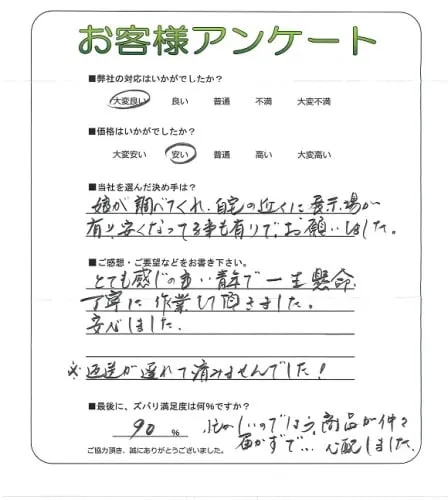 お客様アンケート
■弊社の対応はいかがでしたか?
大変良い 良い 普通 不満 大変不満
■価格はいかがでしたか?
大変安い 安い 普通 高い 大変高い
■当社を選んだ決め手は?
娘が調べてくれ、自宅の近くに展示場が
有り安くなってる事も有りで、お願いしました。
■ご感想・ご要望などをお書き下さい。
とても感じの良い青年で一生懸命
丁寧に作業して頂きました。
安心しました。
※返送が遅れて済みませんでした!
■最後に、ズバリ満足度は何%ですか?
90 % 忙しいのでは?、商品が仲々
届かずで… 心配しました。
ご協力頂き、誠にありがとうございました。